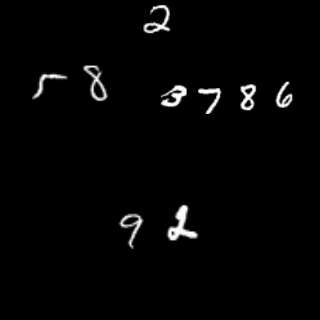 2
58 3786
92